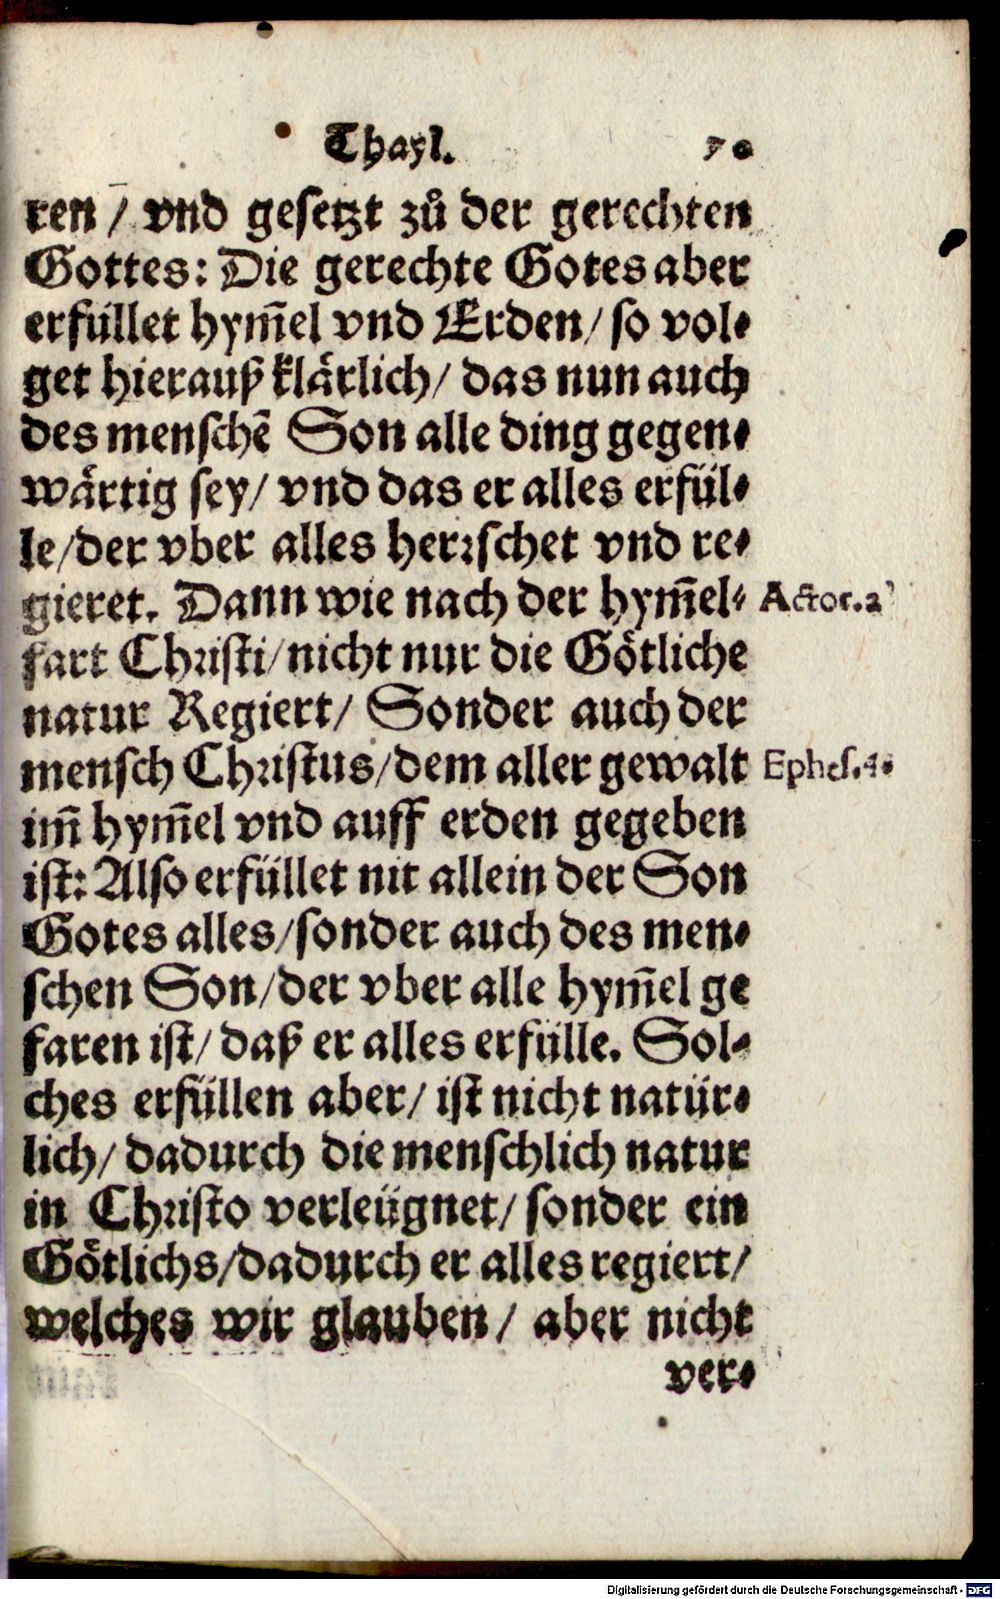 Thayl. 70
ren / vnd gesetzt zů der gerechten
Gottes: Die gerechte Gotes aber
erfüllet hym̃el vnd Erden / so vol⸗
get hierauß klärlich / das nun auch
des menschẽ Son alle ding gegen⸗
wärtig sey / vnd das er alles erfül⸗
le / der vber alles herꝛschet vnd re⸗
gieret. Dann wie nach der hym̃el⸗ Actor. 2
fart Chꝛisti / nicht nur die Götliche
natur Regiert / Sonder auch der
mensch Chꝛistus / dem aller gewalt Ephes. 4.
im̃ hym̃el vnd auff erden gegeben
ist: Also erfüllet nit allein der Son
Gotes alles / sonder auch des men⸗
schen Son / der vber alle hym̃el ge
faren ist / daß er alles erfülle. Sol⸗
ches erfüllen aber / ist nicht natür⸗
lich / dadurch die menschlich natur
in Chꝛisto verleügnet / sonder ein
Götlichs / dadurch er alles regiert /
welches wir glauben / aber nicht
ver⸗
Digitalisierung gefördert durch die Deutsche Forschungsgemeinschaft - DFG